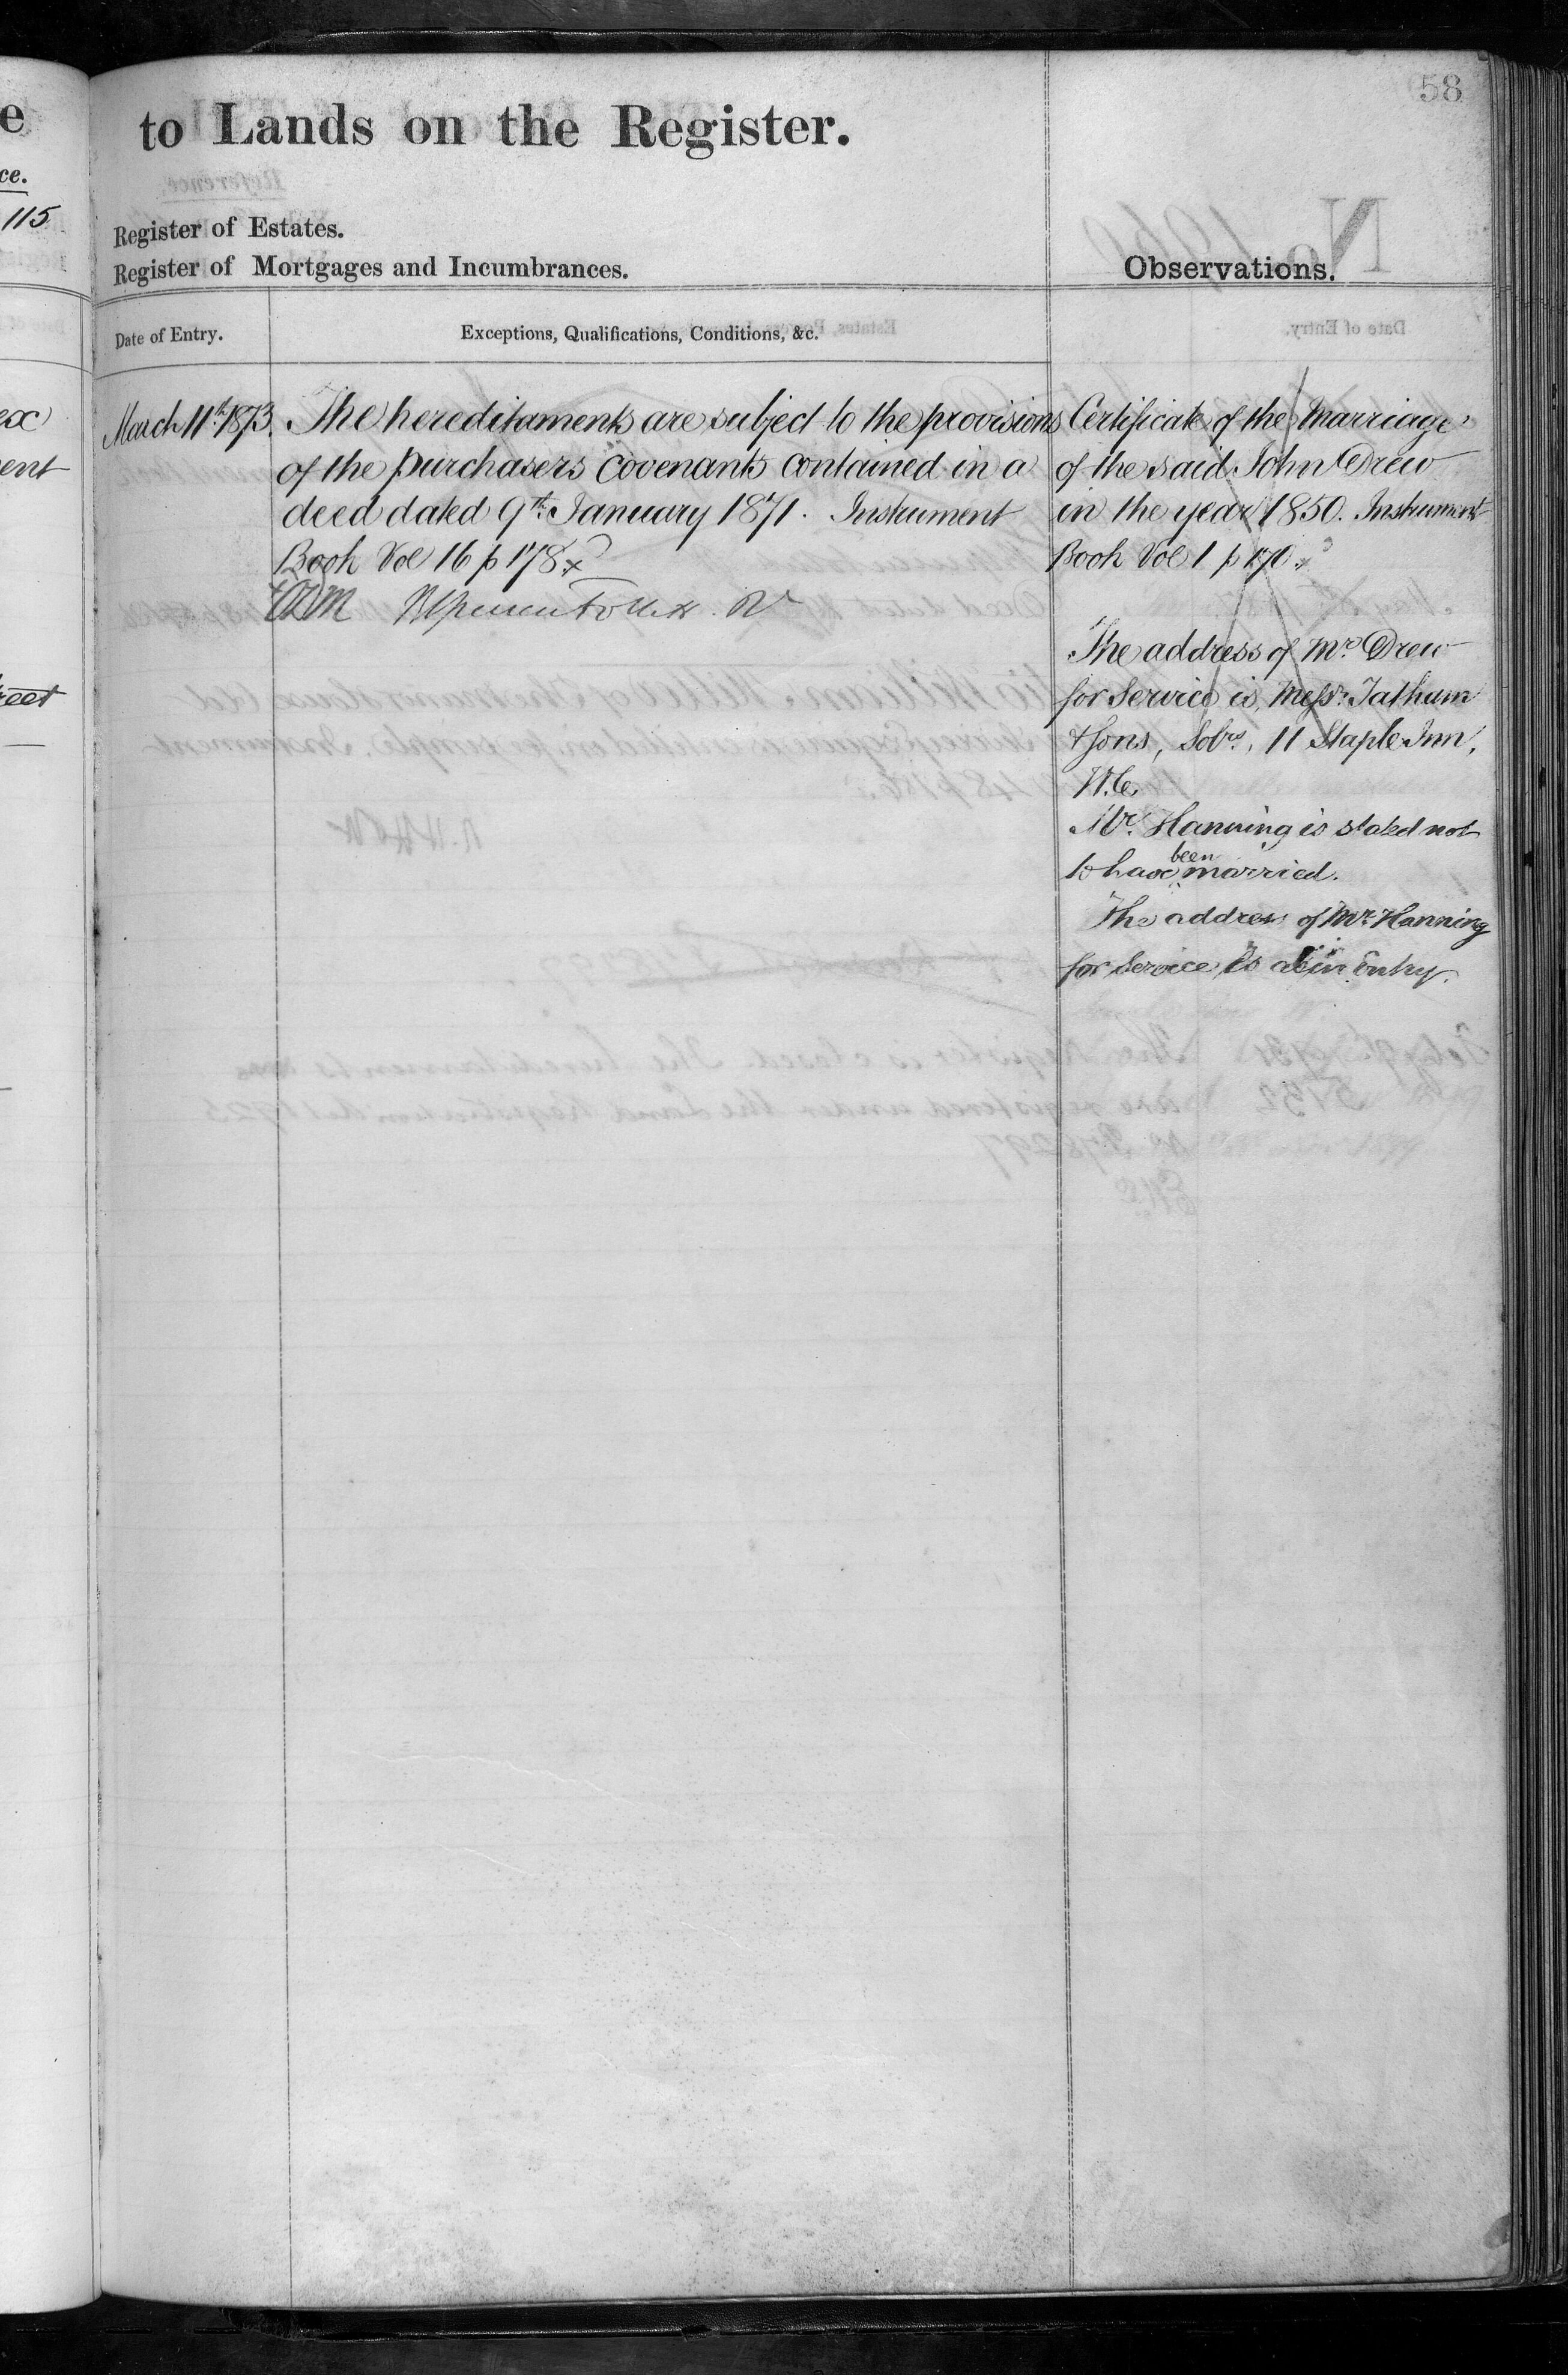 58
e
ce.
115
ex
ent
reet
to Lands on the Register.
Register of Estates.
Register of Mortgages and Incumbrances.
Observations.
Date of Entry.
Exceptions, Qualifications, Conditions, &c.
March 11th 1873.
The hereditaments are subject to the provisions
of the purchasers covenants contained in a
deed dated 9th January 1871. Instrument
Book Vol 16 p 178
Certificate of the Marriage
of the said John Drew
in the year 1850. Instrument
Book Vol 1 p 170.
The address of Mr Drew
for Service is, Messrs Tatham
& Sons, Solrs, 11 Staple Inn,
W.C.
Mr. Hanning is stated not
to have been married.
The address of Mr. Hanning
for Service is as in Entry.